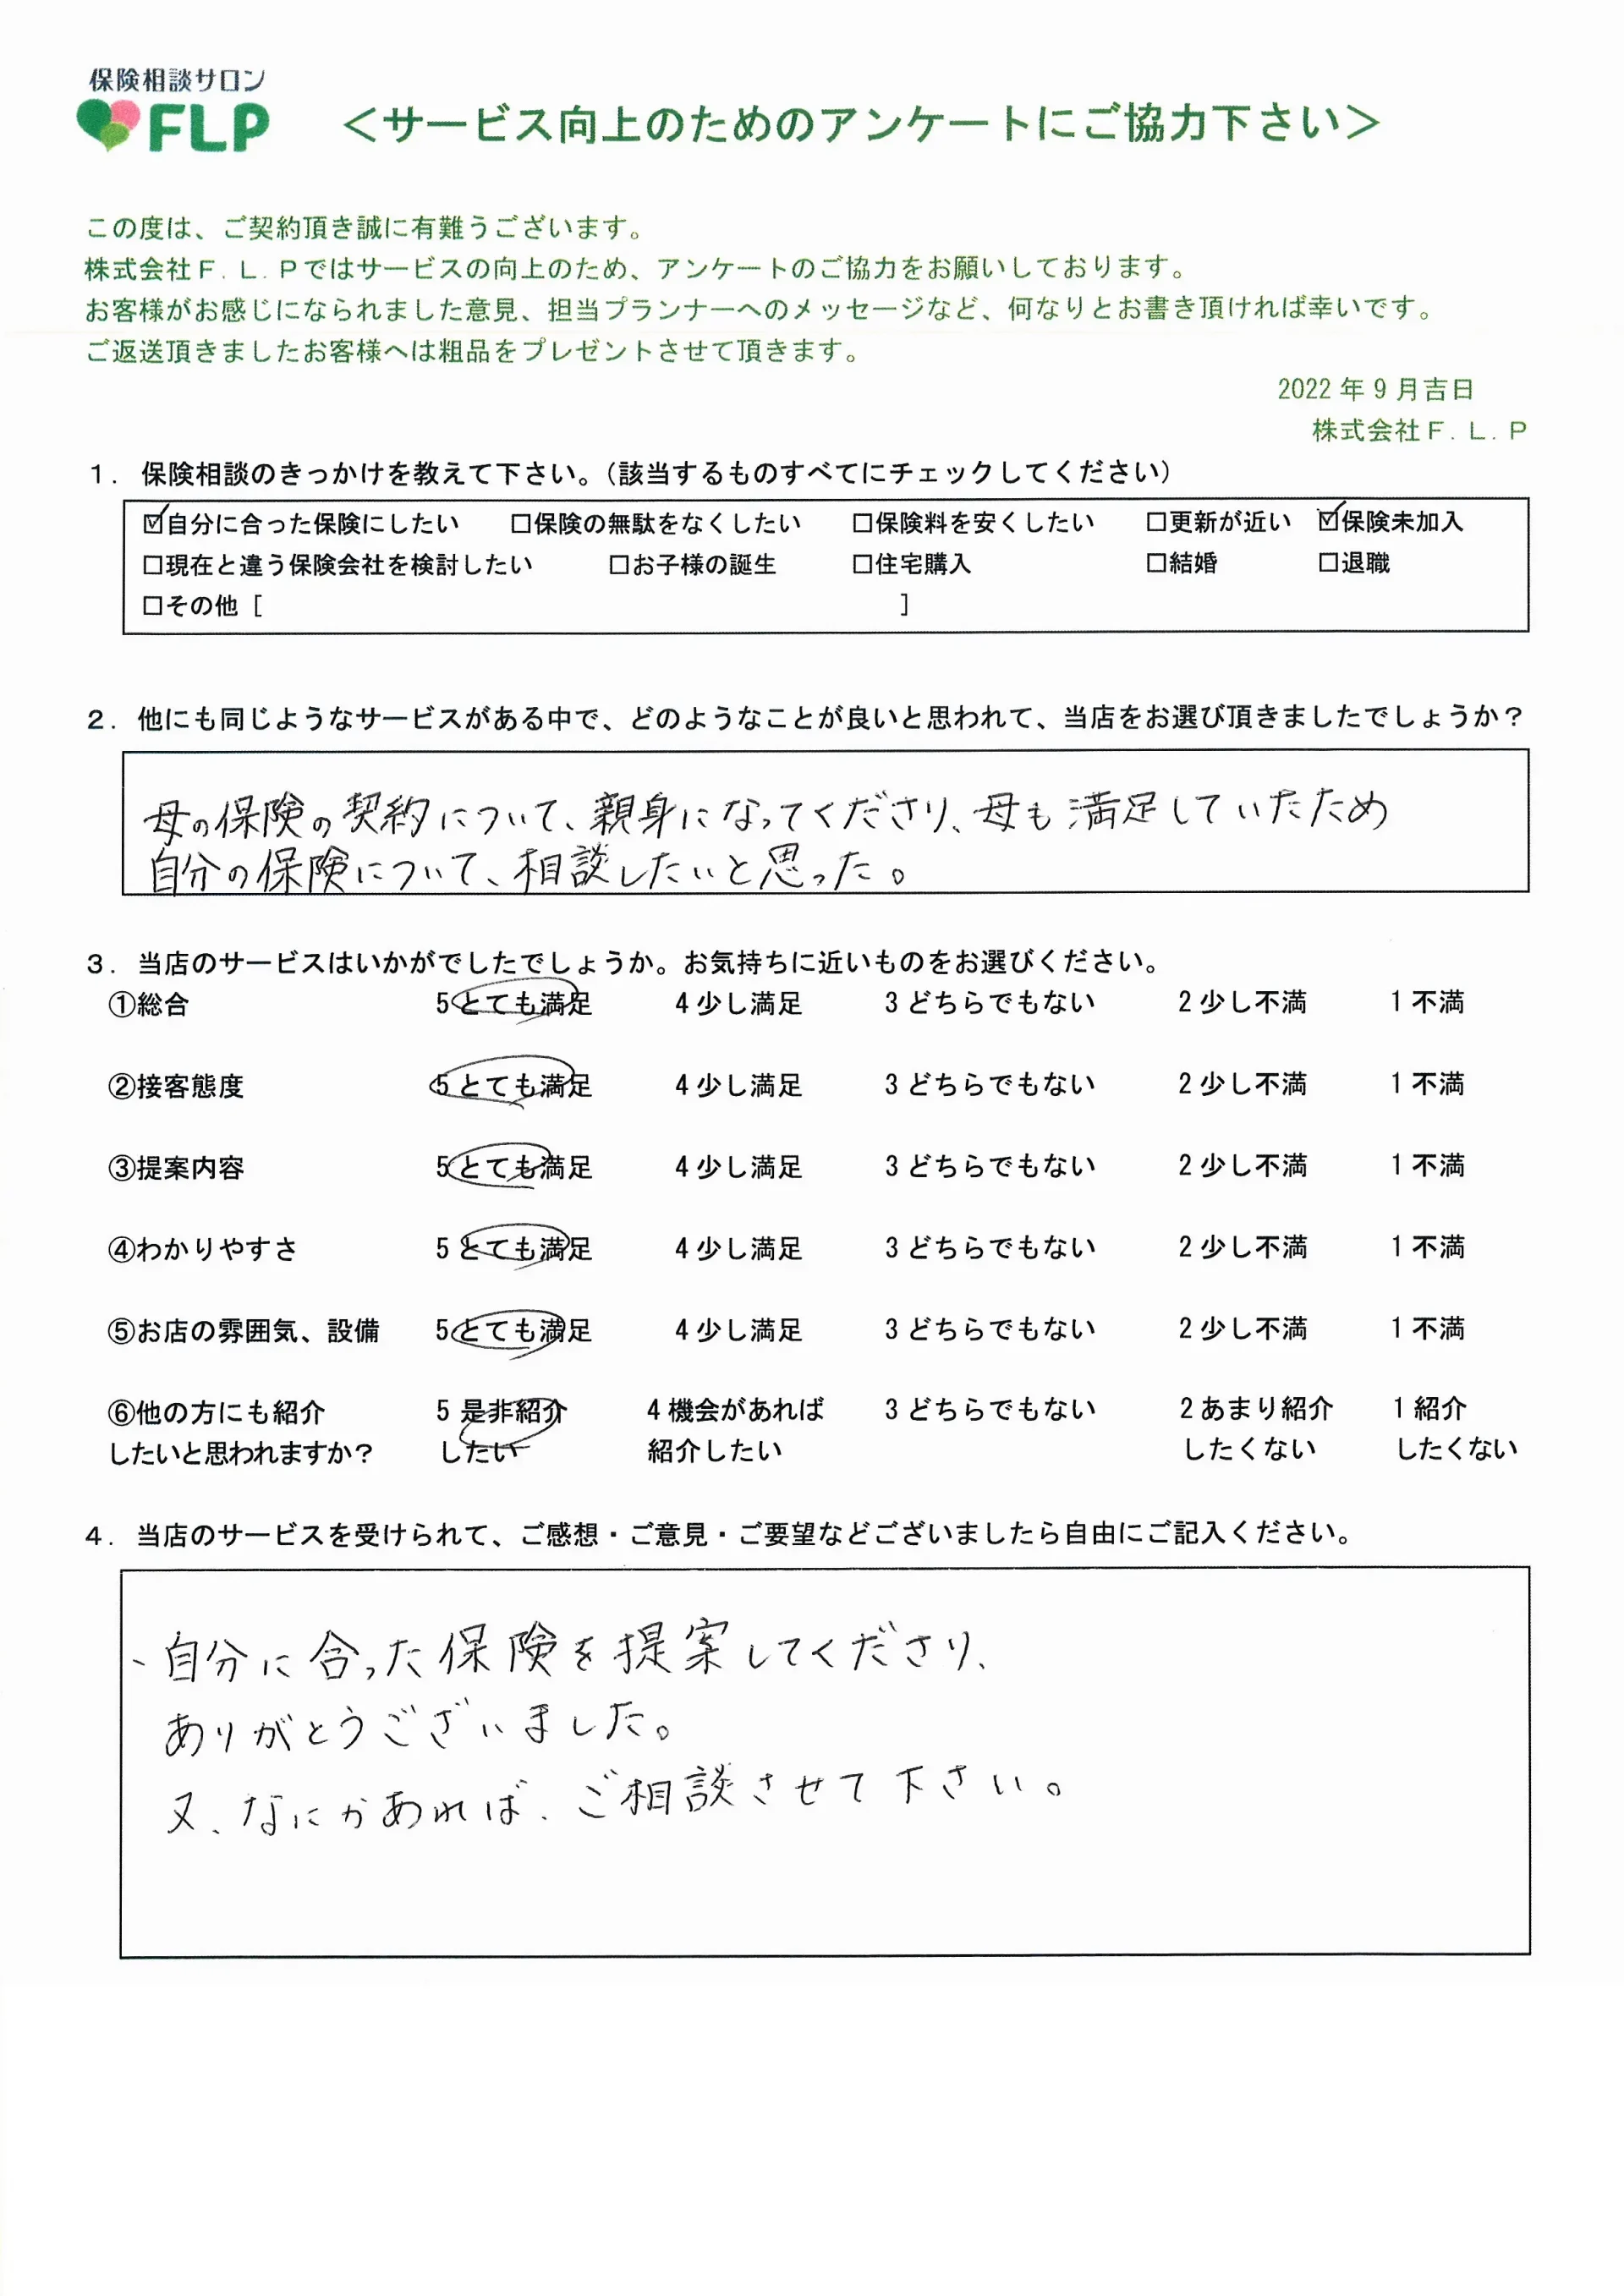 保険相談サロン
FLP
＜サービス向上のためのアンケートにご協力下さい＞
この度は、ご契約頂き誠に有難うございます。
株式会社Ｆ.Ｌ.Ｐではサービスの向上のため、アンケートのご協力をお願いしております。
お客様がお感じになられました意見、担当プランナーへのメッセージなど、何なりとお書き頂ければ幸いです。
ご返送頂きましたお客様へは粗品をプレゼントさせて頂きます。
2022 年 9 月吉日
株式会社Ｆ.Ｌ.Ｐ
１．保険相談のきっかけを教えて下さい。（該当するものすべてにチェックしてください）
☑自分に合った保険にしたい □保険の無駄をなくしたい □保険料を安くしたい □更新が近い ☑保険未加入
□現在と違う保険会社を検討したい □お子様の誕生 □住宅購入 □結婚 □退職
□その他［ ］
２．他にも同じようなサービスがある中で、どのようなことが良いと思われて、当店をお選び頂きましたでしょうか？
母の保険の契約について、親身になってくださり、母も満足していたため
自分の保険について、相談したいと思った。
３．当店のサービスはいかがでしたでしょうか。お気持ちに近いものをお選びください。
①総合 5 とても満足 4 少し満足 3 どちらでもない 2 少し不満 1 不満
②接客態度 5 とても満足 4 少し満足 3 どちらでもない 2 少し不満 1 不満
③提案内容 5 とても満足 4 少し満足 3 どちらでもない 2 少し不満 1 不満
④わかりやすさ 5 とても満足 4 少し満足 3 どちらでもない 2 少し不満 1 不満
⑤お店の雰囲気、設備 5 とても満足 4 少し満足 3 どちらでもない 2 少し不満 1 不満
⑥他の方にも紹介 5 是非紹介 4 機会があれば 3 どちらでもない 2 あまり紹介 1 紹介
したいと思われますか？ したい 紹介したい したくない したくない
４．当店のサービスを受けられて、ご感想・ご意見・ご要望などございましたら自由にご記入ください。
、自分に合った保険を提案してくださり、
ありがとうございました。
又、なにかあれば、ご相談させて下さい。